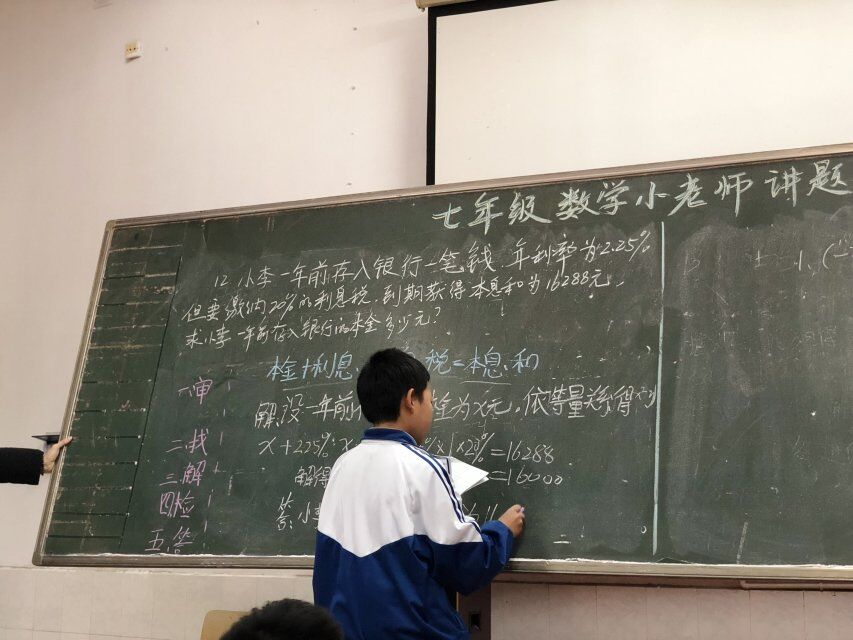 七年级 数学小老师 讲题
12 小李一年前存入银行一笔钱,年利率为2.25%
但要缴纳20%的利息税,到期获得本息和为16288元,
求小李一年前存入银行的本金多少元?
本金+利息 税=本息和
解:设一年前 为x元,依等量关系得
x+2.25%·x ×1×20%=16288
解得 =16000
答:小李
一.审
二.找
三.解
四.检
五.答